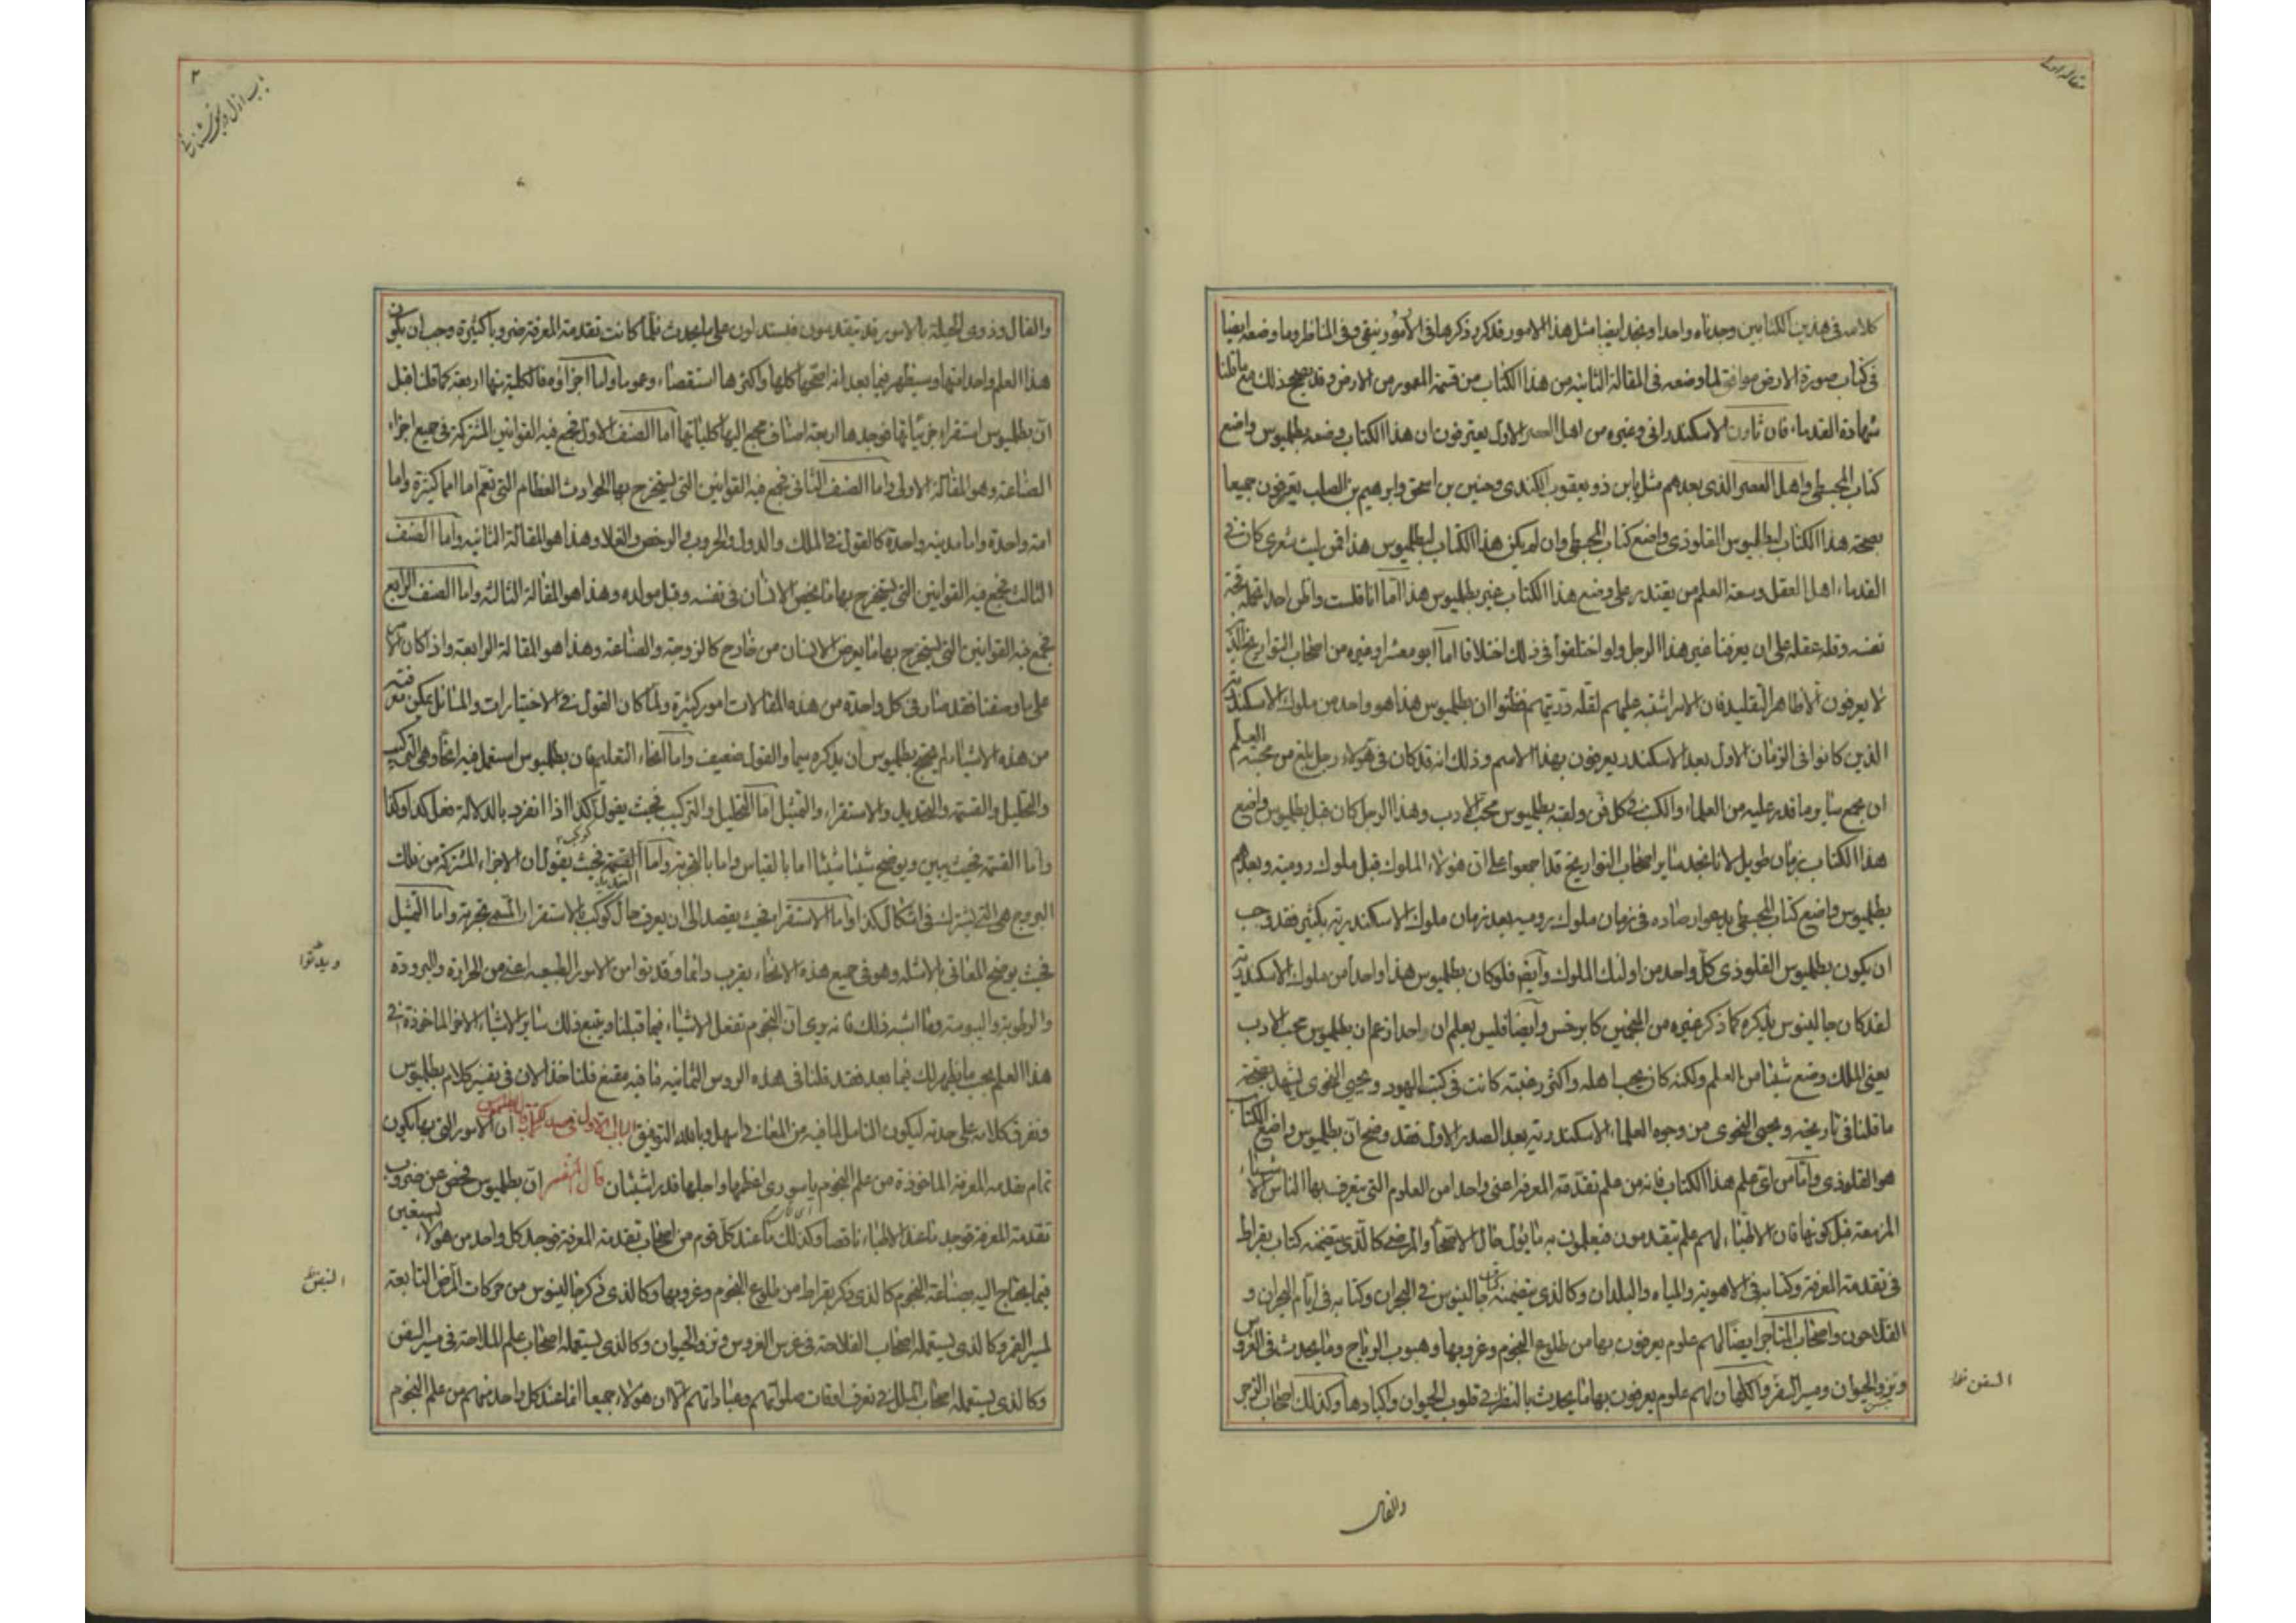 مقالة اولى
كلامه فى هذين الكتابين وجدناه واحدا ونجد ايضا مثل هذا الامور قد كرر ذكرها فى الأمور وفى المناظر وما وضعه ايضا
فى كتاب صورة الارض موافق لما وضعه فى المقالة الثانيه من هذا الكتاب من قسمة المعمور من الارض وقد يصحح ذلك مع ما قلنا
شهادة القدماء فان ثاون الاسكندرانى وغيره من اهل العصر الاول يعترفون ان هذا الكتاب وضعه بطلميوس واضع
كتاب المجسطى واهل العصر الذى بعدهم مثل يعقوب الكندى وحنين بن اسحق وابرهيم بن الصلت يعترفون جميعا
بصحة هذا الكتاب لبطلميوس القلوذى واضع كتاب المجسطى وان لم يكن هذا الكتاب لبطلميوس هذا فمن ليت شعرى كان فى
القدماء اهل العقل وسعة العلم من يقتدر على وضع هذا الكتاب غير بطلميوس هذا اما انا فلست واظن احدا تحمله قحة
نفسه وقلة عقله على ان يعرفنا غير هذا الرجل ولو اختلفوا فى ذلك اختلافا اما ابو معشر وغيره من اصحاب التواريخ الذين
لا يعرفون الا ظاهر التقليد فان الامر اشتبه عليهم لقلة دربتهم فظنوا ان بطلميوس هذا هو واحد من ملوك الاسكندرية
الذين كانوا فى الزمان الاول بعد الاسكندر يعرفون بهذا الاسم وذلك انه قد كان فى هولاء رجل بلغ من محبته العلم
ان جمع سائر ما قدر عليه من العلماء والكتب فى كل فن ولقبه بطلميوس محب الادب وهذا الرجل كان قبل بطلميوس واضع
هذا الكتاب بزمان طويل لانا نجد سائر اصحاب التواريخ قد اجمعوا على ان هولاء الملوك قبل ملوك رومية وبعدهم
بطلميوس واضع كتاب المجسطى يدعو ارصاده فى زمان ملوك رومية بعد زمان ملوك الاسكندرية بكثير فقد وجب
ان يكون بطلميوس القلوذى كل واحد من اولئك الملوك وايضا فلو كان بطلميوس هذا واحدا من ملوك الاسكندرية
لقد كان جالينوس يذكره كما ذكر غيره من المنجمين كابرخس وايضا فليس يعلم ان احدا زعم ان بطلميوس محب الادب
يعنى الملك وضع شيئا من العلم ولكنه كان يحب اهله واكثر رغبته كانت فى كتب اليهود ويحيى النحوى يشهد بصحة
ما قلنا فى تاريخه ويحيى النحوى من وجوه العلماء الاسكندرية بعد الصدر الاول فقد وضح ان بطلميوس واضع الكتاب
هو القلوذى واما من اى علم هذا الكتاب فانه من علم تقدمة المعرفة اعنى واحدا من العلوم التى يتعرف بها الناس الاشياء
المزمعة قبل كونها فان الاطباء لهم علم يتقدمون فيعلمون به ما يؤل حال الاصحاء والمرضى كالذى يتضمنه كتاب بقراط
فى تقدمة المعرفة وكتابه فى الاهوية والمياه والبلدان وكالذى يتضمنه كتاب جالينوس فى البحران وكتابه فى ايام البحران و
الفلاحون واصحاب المتاجر ايضا لهم علوم يعرفون بها من طلوع النجوم وغروبها وهبوب الرياح وما يحدث فى الغروس
ونزو الحيوان ومسير السفر والكهان لهم علوم يعرفون بها ما يحدث بالنظر فى قلوب الحيوان واكبادها وكذلك اصحاب الزجر
السفن
والفال
٢
والفال وذوى الحيلة بالامور قد يتقدمون فيستدلون على ما يحدث فلما كانت تقدمة المعرفة ضروبا كثيرة وجب ان يكون
هذا العلم واحدا منها وسيظهر فيما بعد انه اصحها كلها واكثرها استقصاء وعموما واما اجزاؤه فالكلية منها اربعة كما قلنا قبل
ان بطلميوس استقراء جزئياتها فوجدها اربعة اصناف جمع اليها كلياتها اما الصنف الاول تجمع فيه القوانين المشتركة فى جميع اجزاء
الصناعة وهو المقالة الاولى واما الصنف الثانى تجمع فيه القوانين التى يستخرج بها الحوادث العظام التى تعم اما امما كثيرة واما
امة واحدة واما مدينة واحدة كالقول فى الملك والدول والحروب والرخص والغلاء وهذا هو المقالة الثانيه واما الصنف
الثالث تجمع فيه القوانين التى يستخرج بها ما يخص الانسان فى نفسه وقبل مولده وهذا هو المقالة الثالثه واما الصنف الرابع
تجمع فيه القوانين التى يستخرج بها ما يعرض الانسان من خارج كالزوجة والصناعة وهذا هو المقالة الرابعة واذا كان الامر
على ما وصفنا فقد صار فى كل واحدة من هذه المقالات امور كثيرة ولما كان القول فى الاختيارات والمسائل يمكن معرفته
من هذه الاشياء لم يحتج بطلميوس ان يذكره سيما والقول ضعيف واما انحاء التعليم فان بطلميوس استعمل فيه انحاء وهى التركيب
والتحليل والقسمة والتحديد والاستقراء والتمثيل اما التحليل والتركيب فحيث يقول كوكب كذا اذا انفرد بالدلالة فعل كذا وكذا
واما القسمة فحيث يبين ويوضح شيئا شيئا اما بالقياس واما بالتجربة واما القسمة التحديد فحيث يقول ان الاجزاء المشتركة من فلك
البروج هى التى يشترك فى اشكال كذا واما الاستقراء فحيث يقصد الى ان يعرف حال كوكب بالاستقراء المسمى تجربة واما التمثيل
فحيث يوضح المعانى بالامثلة وهو فى جميع هذه الانحاء يقرب دائما وقد نوا من الامور الطبيعية اعنى من الحرارة والبرودة
والرطوبة واليبوسة وما اشبه ذلك فانه يرى ان النجوم تفعل الاشياء فيما قبلنا ويتبع ذلك سائر الاشياء الاخر الماخوذة فى
هذا العلم بحسب ما يظهر لك فيما بعد فقد قلنا فى هذه الروس الثمانيه ما فيه مقنع فلناخذ الان فى تفسير كلام بطلميوس
ونفرق كلامه على حدته ليكون التامل لما فيه من المعانى اسهل وبالله التوفيق الباب الاول قال بطلميوس ان الامور التى بها يكون
تمام تقدمه المعرفة الماخوذة من علم النجوم ياسورى اعظمها واجلها قدرا شيئان قال المفسر ان بطلميوس فحص عن ضروب
تقدمة المعرفة فوجد ما عند الاطباء ناقصا وكذلك ما عند كل قوم من اصحاب تقدمة المعرفة فوجد كل واحد من هولاء يستعين
فيما يحتاج اليه بصناعة النجوم كالذى ذكر بقراط من طلوع النجوم وغروبها وكالذى ذكر جالينوس من حركات المرض التابعة
لمسير القمر وكالذى يستعمله اصحاب الفلاحة فى غرس الغروس ونزو الحيوان وكالذى يستعمله اصحاب علم الملاحة فى مسير السفن
وكالذى يستعمله اصحاب الملل فى تعرف اوقات صلواتهم وعباداتهم الا ان هولاء جميعا انما عند كل واحد منهم من علم النجوم